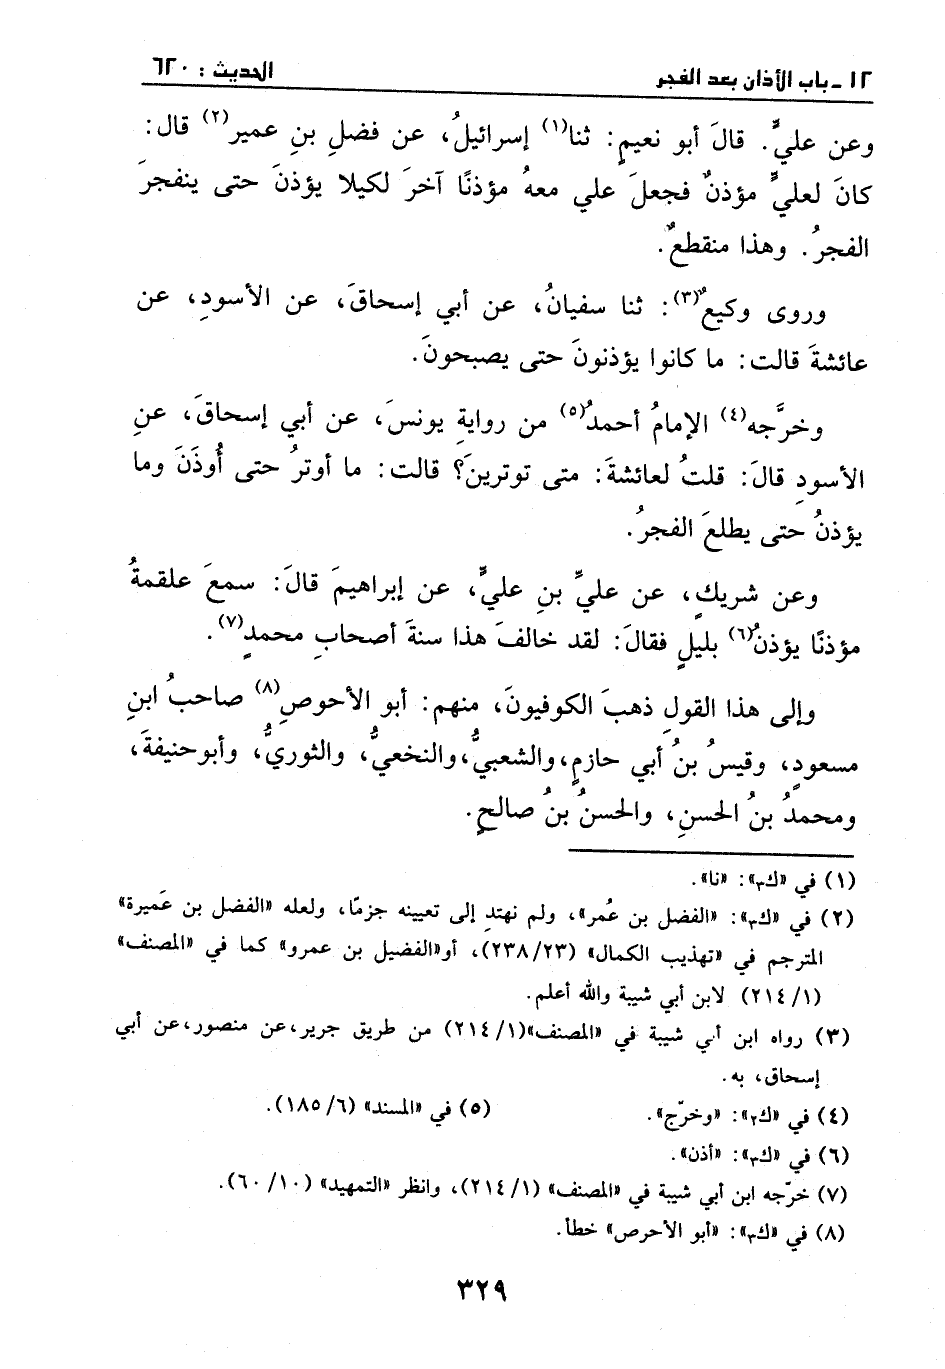 ١٢ - باب الأذان بعد الفجر
الحديث : ٦٢٠
وعن عليٍّ. قالَ أبو نعيمٍ: ثنا(١) إسرائيلُ، عن فضلِ بنِ عمير(٢) قال:
كانَ لعليٍّ مؤذنٌ فجعلَ علي معهُ مؤذنًا آخرَ لكيلا يؤذنَ حتى ينفجرَ
الفجرُ. وهذا منقطعٌ.
وروى وكيعٌ(٣): ثنا سفيانُ، عن أبي إسحاقَ، عن الأسودِ، عن
عائشةَ قالت: ما كانوا يؤذنونَ حتى يصبحونَ.
وخرَّجه(٤) الإمامُ أحمدُ(٥) من روايةِ يونسَ، عن أبي إسحاقَ، عنِ
الأسودِ قالَ: قلتُ لعائشةَ: متى توترينَ؟ قالت: ما أوترُ حتى أُوذَنَ وما
يؤذنُ حتى يطلعَ الفجرُ.
وعن شريكٍ، عن عليِّ بنِ عليٍّ، عن إبراهيمَ قالَ: سمعَ علقمةُ
مؤذنًا يؤذنُ(٦) بليلٍ فقالَ: لقد خالفَ هذا سنةَ أصحابِ محمدٍ(٧).
وإلى هذا القولِ ذهبَ الكوفيونَ، منهم: أبو الأحوصِ(٨) صاحبُ ابنِ
مسعودٍ، وقيسُ بنُ أبي حازمٍ،والشعبيُّ،والنخعيُّ، والثوريُّ، وأبوحنيفةَ،
ومحمدُ بنُ الحسنِ، والحسنُ بنُ صالحٍ.
(١) في «ك٣»: «نا».
(٢) في «ك٣»: «الفضل بن عُمر»، ولم نهتدِ إلى تعيينه جزمًا، ولعله «الفضل بن عَميرة»
المترجم في «تهذيب الكمال» (٢٣٨/٢٣)، أو«الفضيل بن عمرو» كما في «المصنف»
(٢١٤/١) لابن أبي شيبة والله أعلم.
(٣) رواه ابن أبي شيبة في «المصنف»(٢١٤/١) من طريق جرير،عن منصور،عن أبي
إسحاق، به.
(٤) في «ك٢»: «وخرّج».
(٥) في «المسند» (١٨٥/٦).
(٦) في «ك٣»: «أذن».
(٧) خرّجه ابن أبي شيبة في «المصنف» (٢١٤/١)، وانظر «التمهيد» (٦٠/١٠).
(٨) في «ك٣»: «أبو الأحرص» خطأ.
٣٢٩